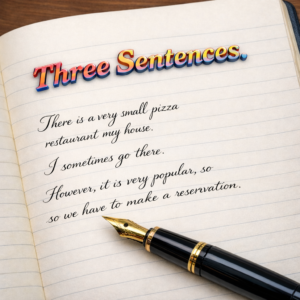 Three Sentences.
There is a very small pizza
restaurant my house.
I sometimes go there.
However, it is very popular, so
so we have to make a reservation.